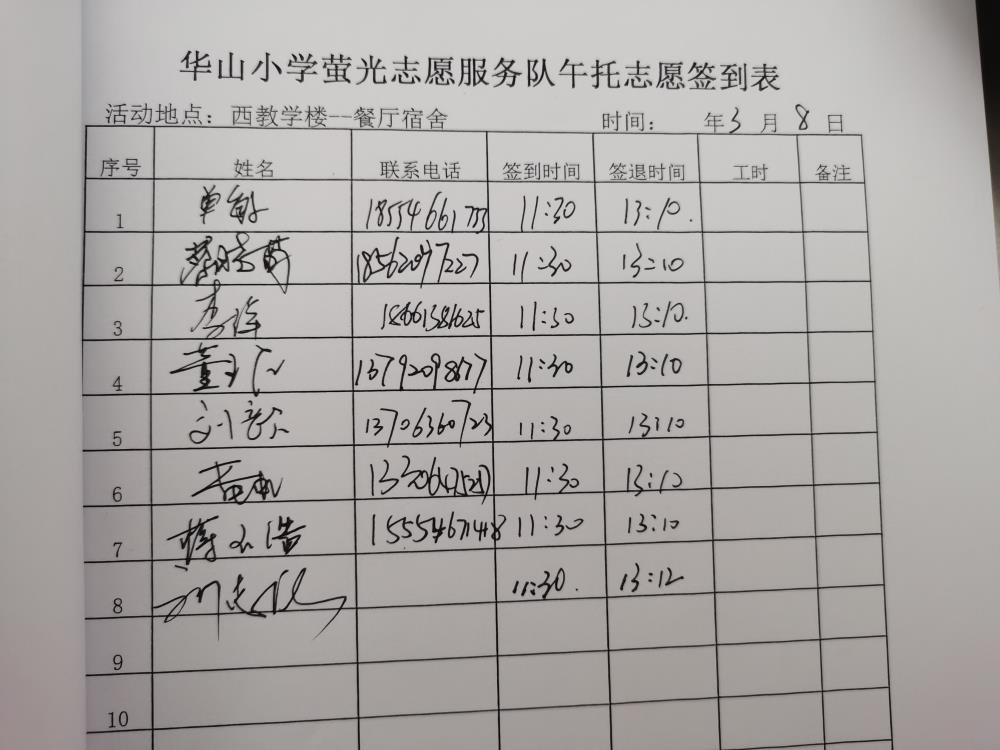 华山小学萤光志愿服务队午托志愿签到表
活动地点：西教学楼--餐厅宿舍 时间： 年3月8日
序号 姓名 联系电话 签到时间 签退时间 工时 备注
1 单敏 11:30 13:10.
2 18562097227 11:30 13:10
3 李 11:30 13:10.
4 董 11:30 13:10
5 刘 13706360723 11:30 13:10
6 11:30 13:10
7 蒋 浩 15554671448 11:30 13:10
8 11:30. 13:12
9
10